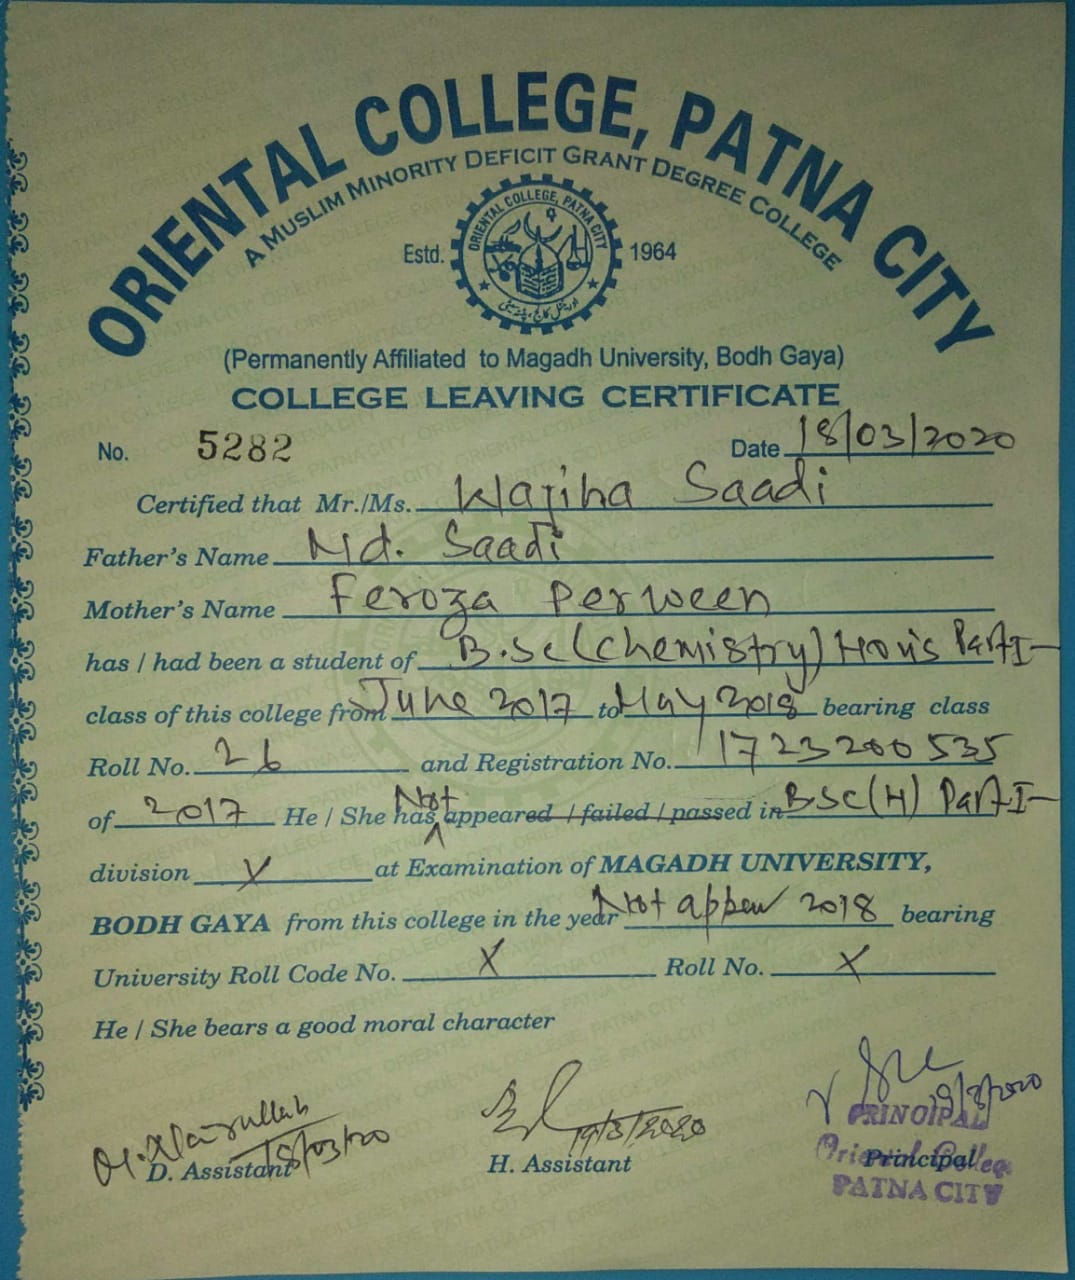 ORIENTAL COLLEGE, PATNA CITY
A MUSLIM MINORITY DEFICIT GRANT DEGREE COLLEGE
Estd. 1964
ORIENTAL COLLEGE, PATNA CITY
(Permanently Affiliated to Magadh University, Bodh Gaya)
COLLEGE LEAVING CERTIFICATE
No. 5282 Date 18/03/2020
Certified that Mr./Ms. Wajiha Saadi
Father's Name Md. Saadi
Mother's Name Feroza Perween
has / had been a student of B.Sc (Chemistry) Hon's Part I-
class of this college from June 2017 to May 2018 bearing class
Roll No. 26 and Registration No. 1723200535
of 2017 He / She has Not appeared / failed / passed in BSC(H) Part I-
division X at Examination of MAGADH UNIVERSITY,
BODH GAYA from this college in the year Not appear 2018 bearing
University Roll Code No. X Roll No. X
He / She bears a good moral character
18/03/20 19/3/2020 19/3/2020
D. Assistant H. Assistant Principal
PRINCIPAL
Oriental College
PATNA CITY